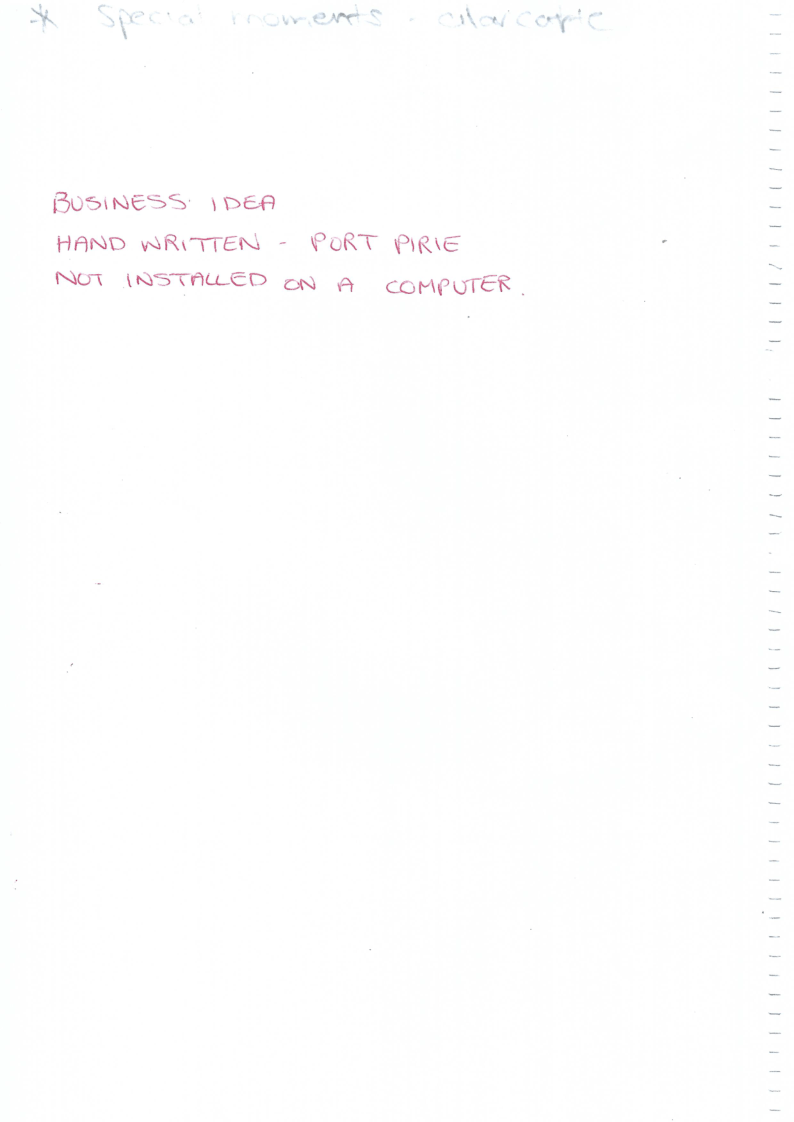 * Special moments -
BUSINESS IDEA
HAND WRITTEN - PORT PIRIE
NOT INSTALLED ON A COMPUTER.